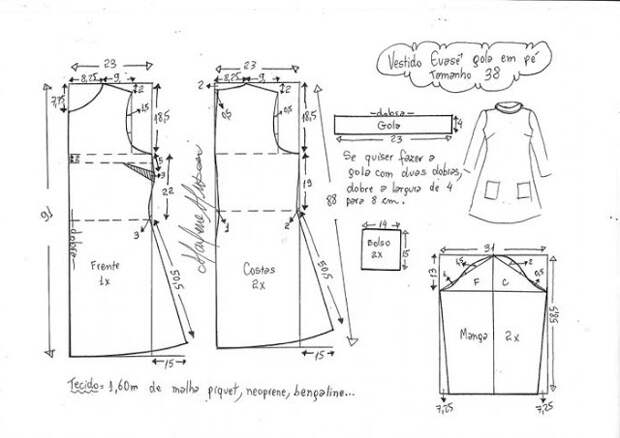 Vestido Evasê gola em pé
Tamanho 38
23
8,25
9
2
7,75
1,5
18,5
5
3
22
91
3
dobra
Frente
1x
50,5
15
23
8,25
9
2
2
0,5
0,5
18,5
19
88
1
2
Costas
2x
50,5
15
dobra
Gola
4
23
Se quiser fazer a
gola com duas dobras,
dobre a largura de 4
para 8 cm.
14
Bolso
2x
15
31
13
1
1,5
2
0,5
F
C
58,5
Manga 2x
7,25
7,25
Tecido= 1,60m de malha piquet, neoprene, bengaline...